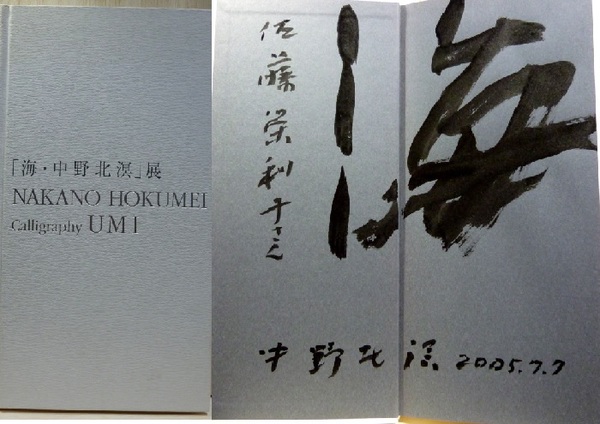 「海・中野北溟」展
NAKANO HOKUMEI
Calligraphy UMI
海
佐藤栄利子さん
中野北溟 2005.7.7